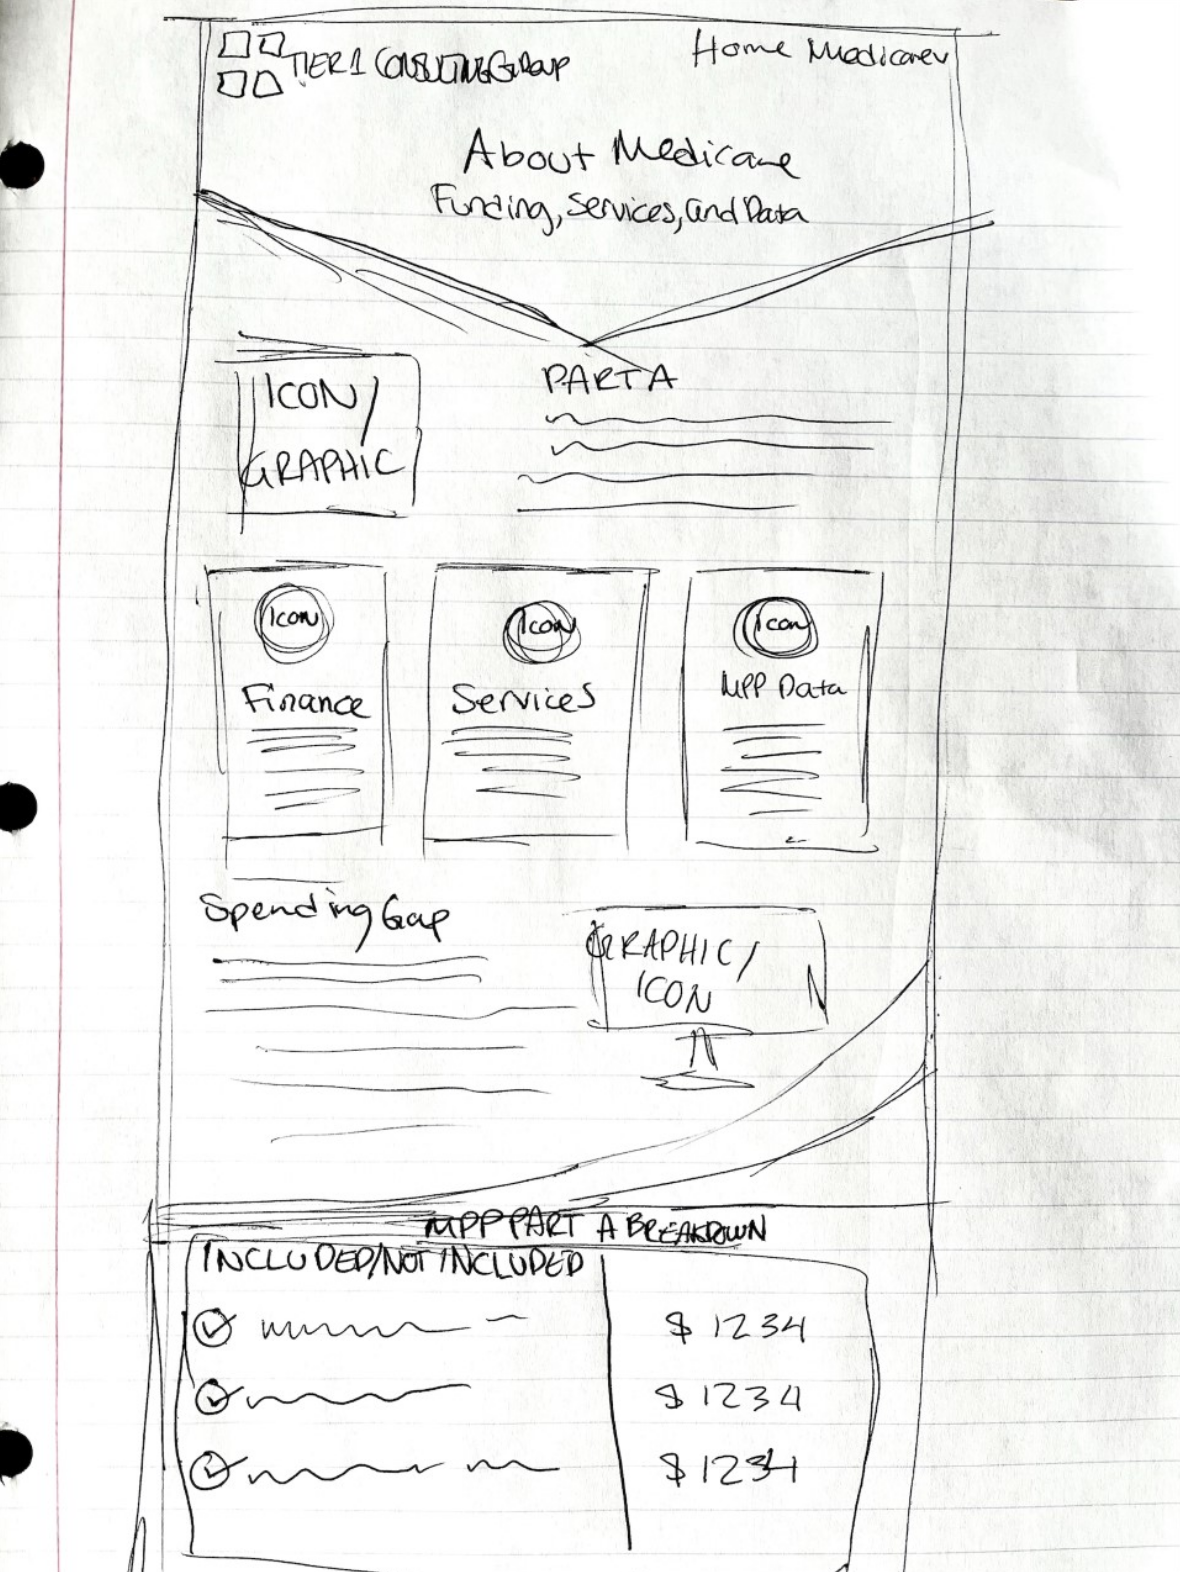 TIER 1 CONSULTING GROUP
Home Medicare v
About Medicare
Funding, Services, and Data
ICON/
GRAPHIC
PART A
Icon
Icon
Icon
Finance
Services
MPP Data
Spending Gap
GRAPHIC/
ICON
MPP PART A BREAKDOWN
INCLUDED/NOT INCLUDED
$ 1234
$ 1234
$ 1234